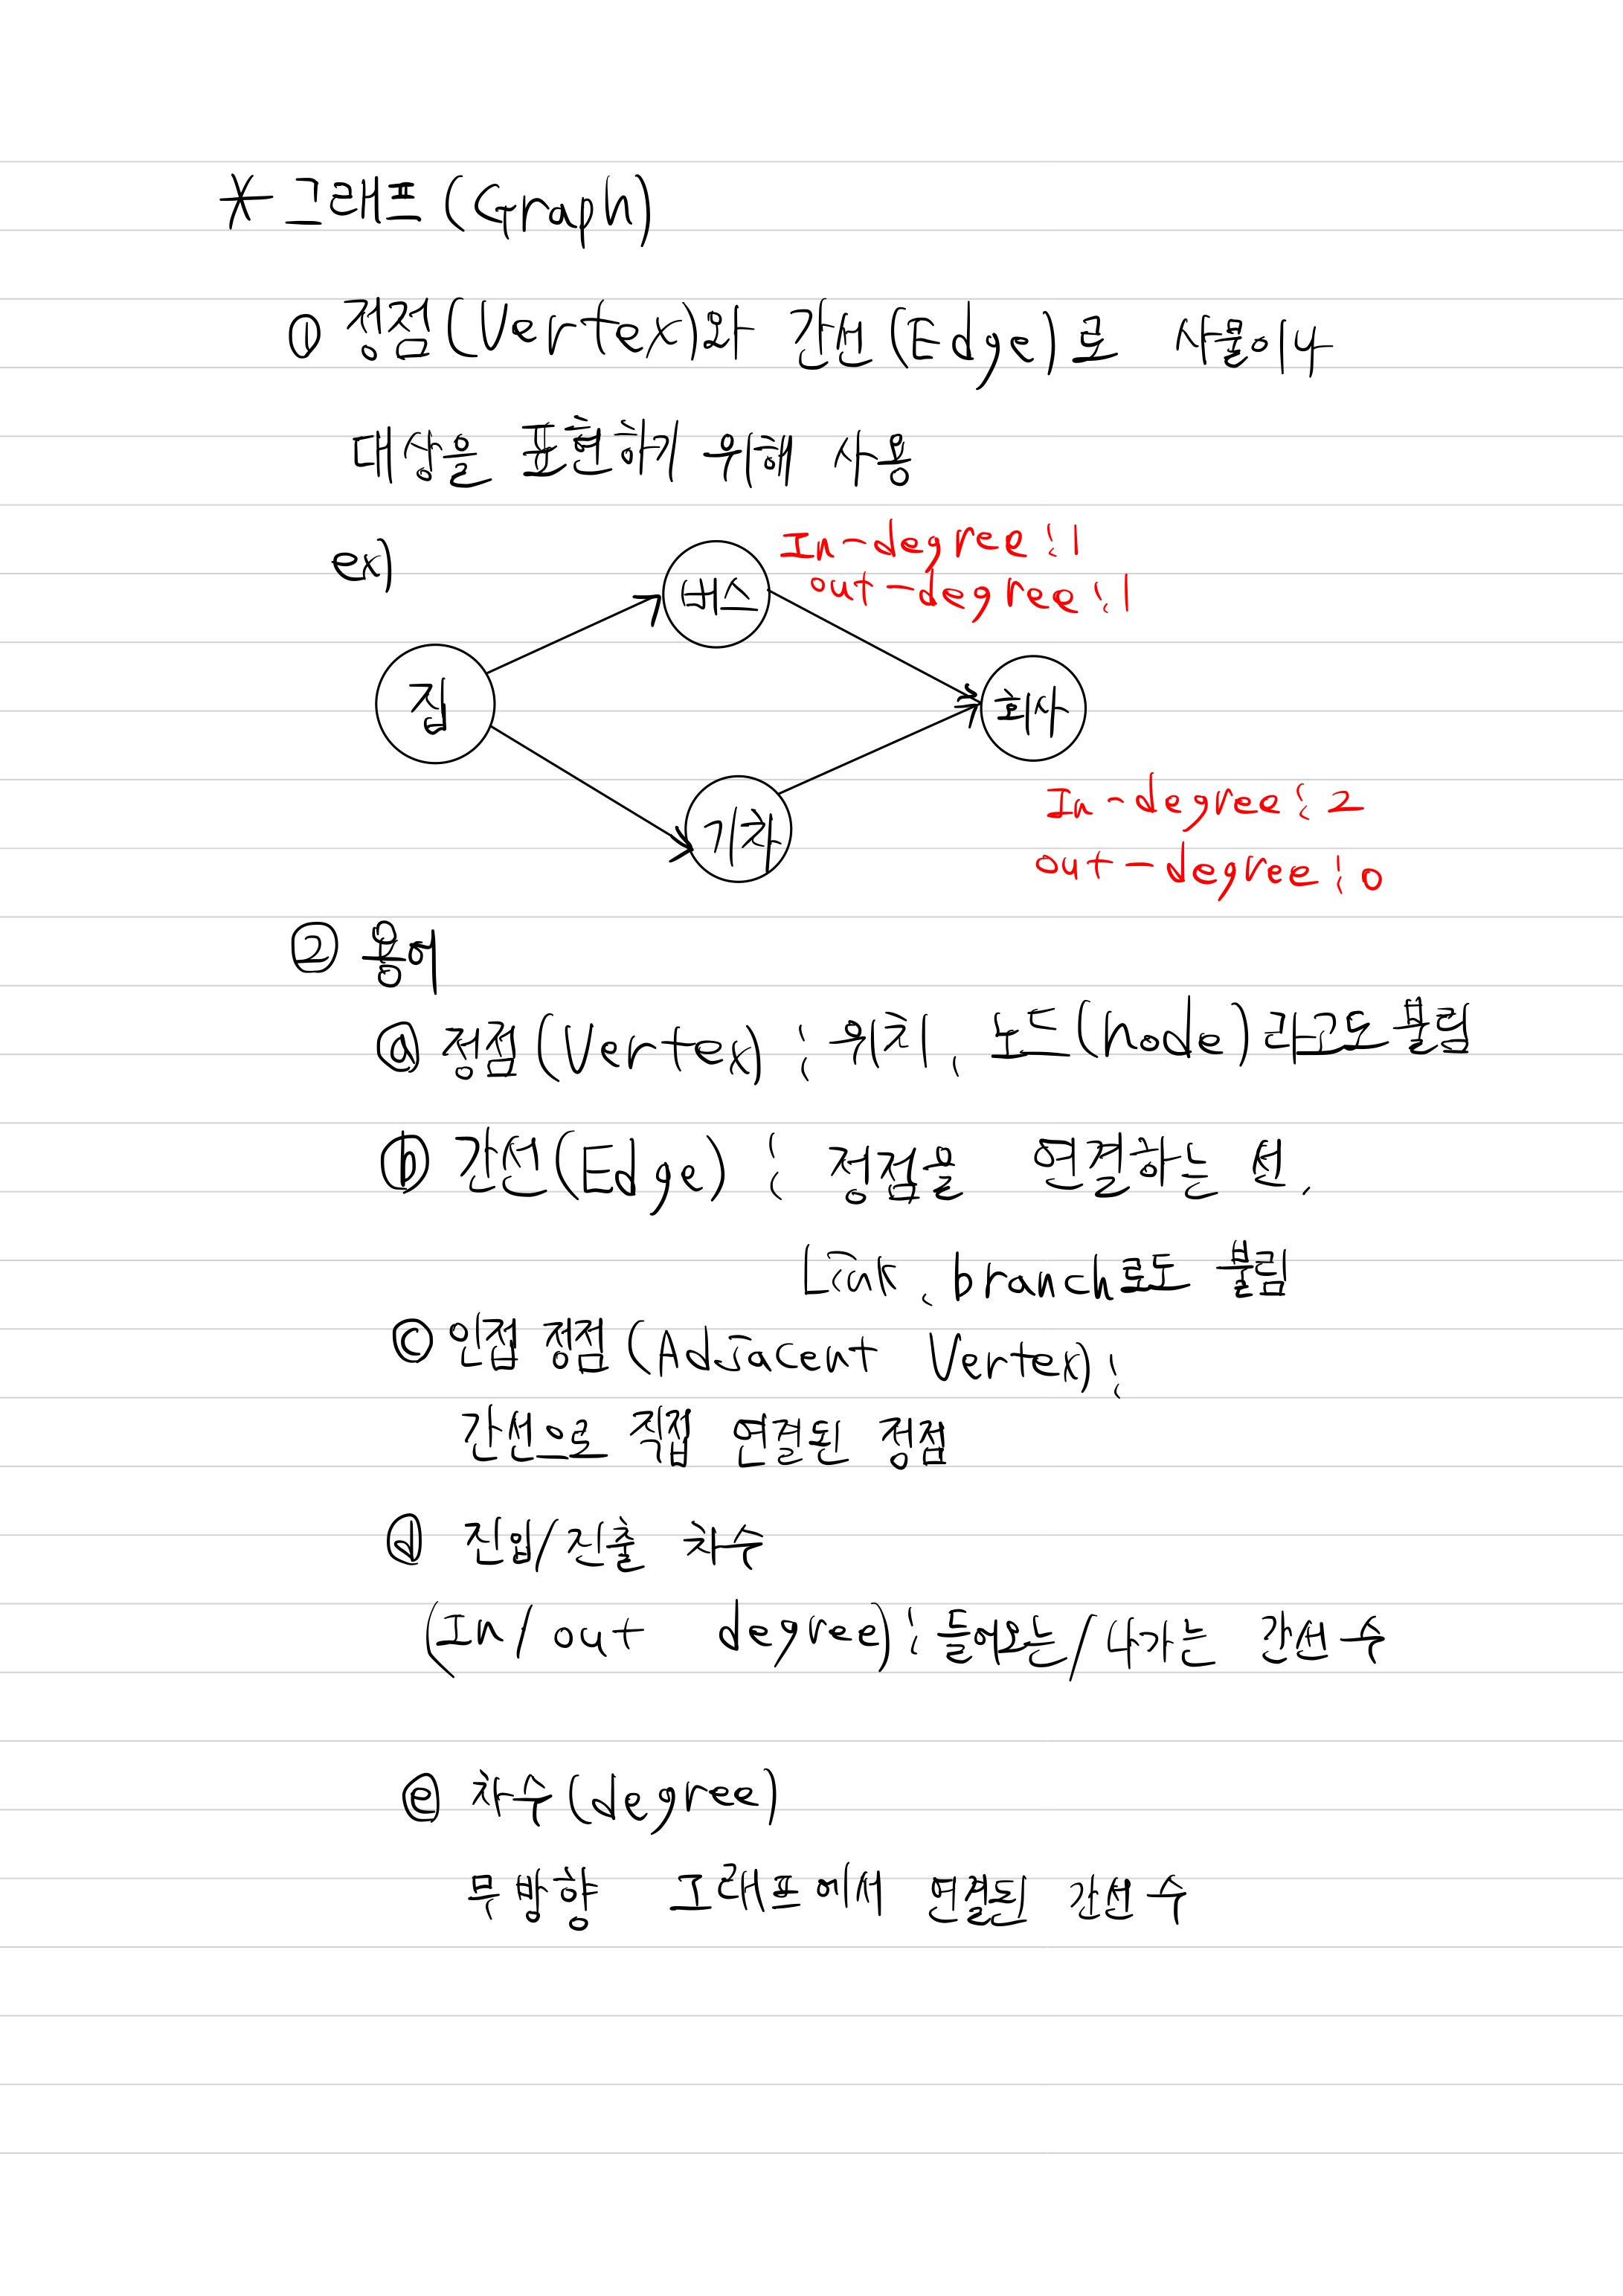 * 그래프 (Graph)
① 정점(Vertex)와 간선(Edge)로 사물이나
대상을 표현하기 위해 사용
ex)
In-degree : 1
out-degree : 1
버스
집
회사
기차
In-degree : 2
out-degree : 0
② 용어
ⓐ 정점(Vertex) : 위치, 노드(node)라고도 불림
ⓑ 간선(Edge) : 정점을 연결하는 선,
Link, branch로도 불림
ⓒ 인접 정점 (Adjacent Vertex) :
간선으로 직접 연결된 정점
ⓓ 진입/진출 차수
(In/out degree) : 들어오는/나가는 간선 수
ⓔ 차수(degree)
무방향 그래프에서 연결된 간선 수